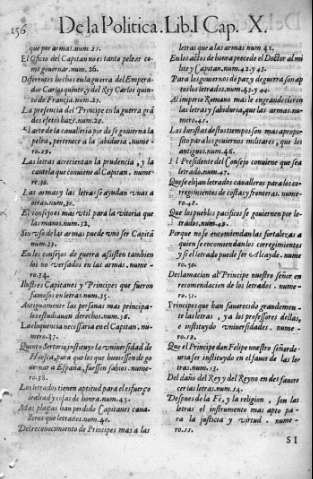 156 De la Politica. Lib. I Cap. X.
que por armas. num. 25.
El Oficio del Capitan no es tanto pelear como gouernar. num. 26.
Diferentes hechos en la guerra del Emperador Carlos quinto, y del Rey Carlos quinto de Francia. num. 27.
La presencia del Principe en la guerra grã des efetos haze. num. 28.
El arte de la caualleria por do se gouierna la pelea, pertenece a la sabiduria. numero. 29.
Las letras acrecientan la prudencia, y la cautela que conuiene al Capitan. numero. 30.
Las armas y las letras se ayudan vnas a otras. num. 31.
El consejo es mas vtil para la vitoria que las manos. num. 32.
Sin vso de las armas puede vno ser Capitã num. 33.
En los consejos de guerra assisten tambien los no versados en las armas. numero. 34.
Ilustres Capitanes y Principes que fueron famosos en letras num. 35.
Antiguamente las personas mas principales estudiauan derechos. num. 36.
La eloquencia necessaria en el Capitan. numero. 37.
Quinto Sertorio instituyo la vniuersidad de Huesca, para que los que huuiessen de gouernar a España, fuessen sabios. numero. 38.
Las letras tienen aptitud para el esfuerço lealtad y cosas de honra. num. 39.
Mas plaças han perdido Capitanes caualleros que letrados. num. 40.
De reconocimiento de Principes mas a las
letras que a las armas num. 41.
En los actos de honra precede el Doctor al milite y Capitan. num. 42. y 43.
Para los gouiernos de paz y de guerra son aptos los letrados. num. 43. y 44.
Al imperio Romano mas le engrandecieron las letras y sabiduria, que las armas. numero. 45.
Los juristas destos tiempos son mas a proposito para los gouiernos militares, que los antiguos. num. 46.
El Presidente del Consejo conuiene que sea letrado. num. 47.
Que se elijan letrados caualleros para los corregimientos de costa y fronteras. numero. 48.
Que los pueblos pacificos se gouiernen por letrados. num. 49.
Porque no se encomiendan las fortalezas a quien se encomiendan los corregimientos y si el letrado puede ser Alcayde. numero. 50.
Declamacion al Principe nuestro señor en recomendacion de los letrados. numero. 51.
Principes que han fauorecido grandemente las letras, y a los professores dellas, e instituydo vniuersidades. numero. 52.
Que el Principe don Felipe nuestro señor deuria ser instituydo en el fauor de las letras. num. 53.
Del daño del Rey y del Reyno en desfauorecer las letras. num. 54.
Despues de la Fé, y la religion, son las letras el instrumento mas apto para la justicia y virtud. numero. 55.
SI